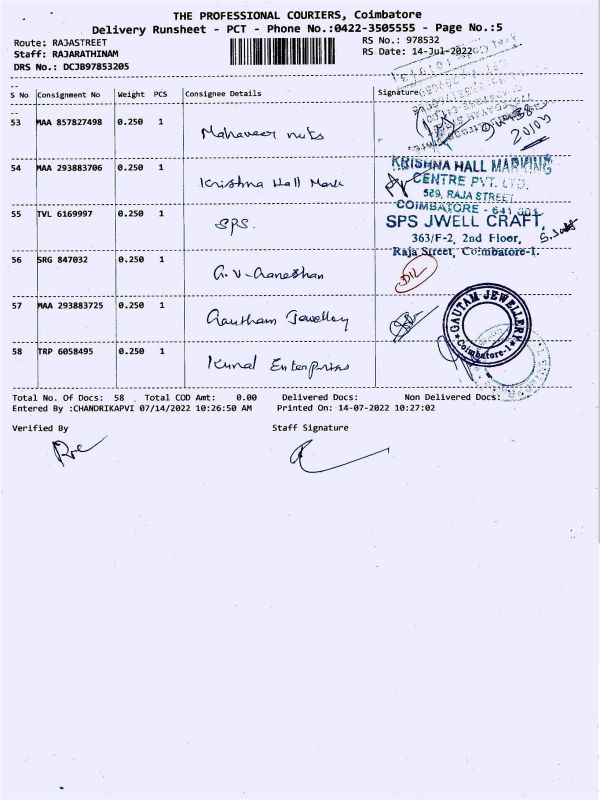 THE PROFESSIONAL COURIERS, Coimbatore
Delivery Runsheet - PCT - Phone No.:0422-3505555 - Page No.:5
Route: RAJASTREET RS No.: 978532
Staff: RAJARATHINAM RS Date: 14-Jul-2022
DRS No.: DCJB97853205
S No Consignment No Weight PCS Consignee Details Signature
53 MAA 857827498 0.250 1 Mahaveer nuts
54 MAA 293883706 0.250 1 Krishna Hall Mark
KRISHNA HALL MARKING
CENTRE PVT. LTD.
569, RAJA STREET
COIMBATORE - 641 001
55 TVL 6169997 0.250 1 SPS.
SPS JWELL CRAFT,
363/F-2, 2nd Floor,
Raja Street, Coimbatore-1.
56 SRG 847032 0.250 1 G.V. Ganeshan
57 MAA 293883725 0.250 1 Gautham Jewellery
GAUTAM JEWELLERY
Coimbatore-1
58 TRP 6058495 0.250 1 Kunal Enterprises
Total No. Of Docs: 58 Total COD Amt: 0.00 Delivered Docs: Non Delivered Docs:
Entered By :CHANDRIKAPVI 07/14/2022 10:26:50 AM Printed On: 14-07-2022 10:27:02
Verified By Staff Signature